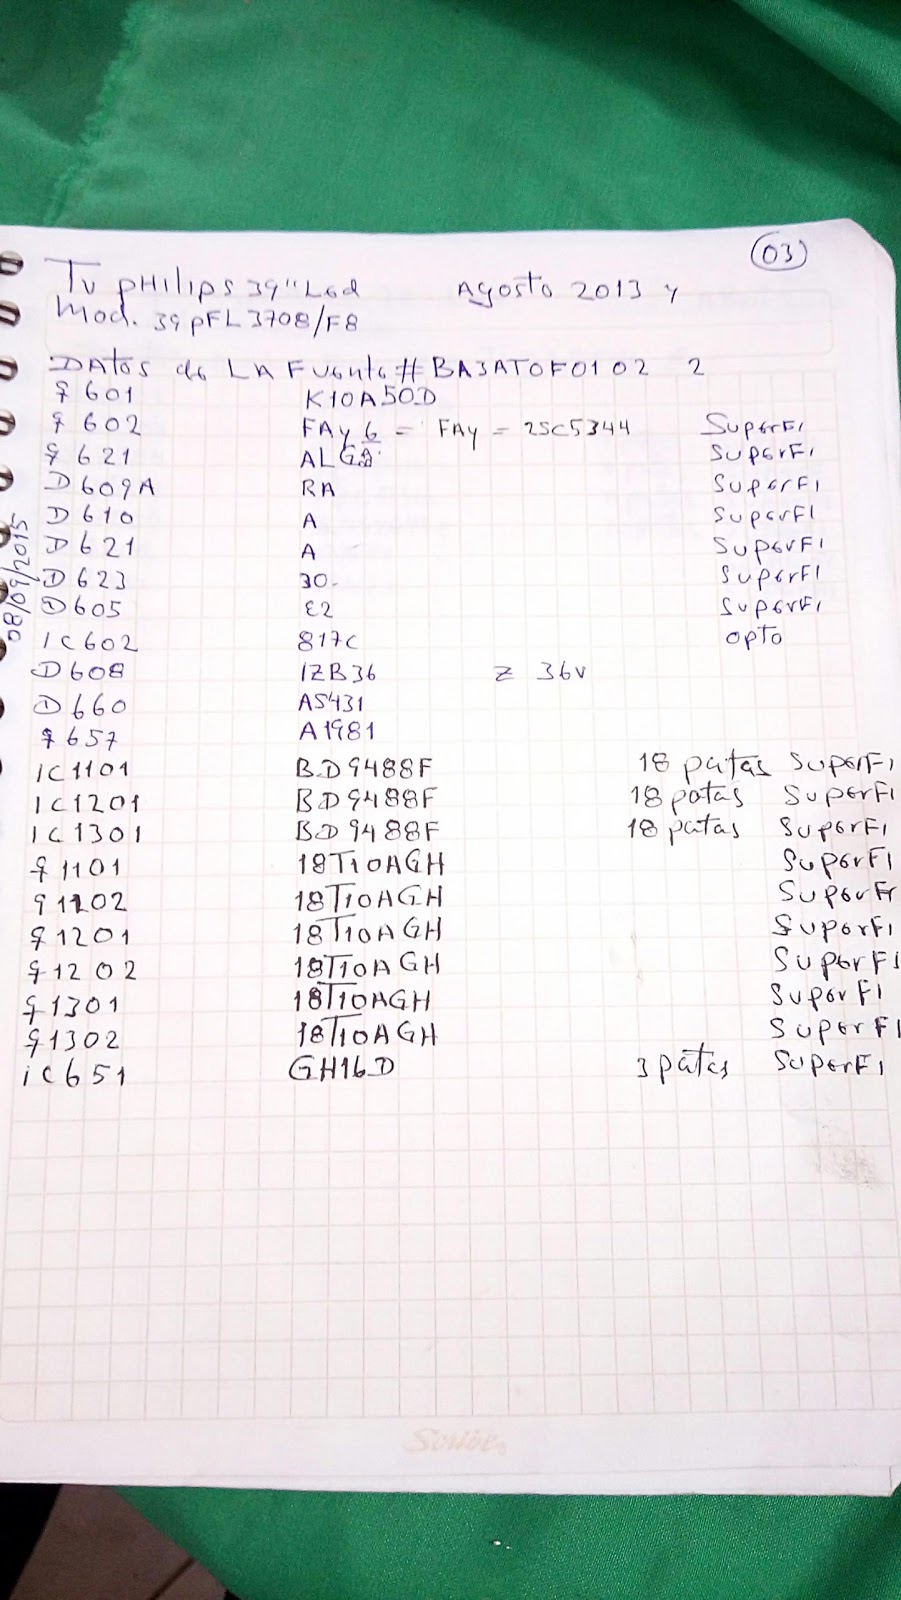 03
Tv PHilips 39" Led Agosto 2013 y
Mod. 39 pFL3708/F8
DAtos de LA Fuente # BA3AT0F0102 2
q 601 K10A50D
q 602 FAy 6 = FAy = 2SC5344 SuperFi
q 621 SuperFi
D609A RA SuperFi
D610 A SuperFi
D621 A SuperFi
D623 30 SuperFi
D605 E2 SuperFi
IC602 817C opto
D608 1ZB36 Z 36v
D660 AS431
q 657 A1981
IC1101 BD9488F 18 patas SuperFi
IC1201 BD9488F 18 patas SuperFi
IC1301 BD9488F 18 patas SuperFi
q1101 18T10AGH SuperFi
q1102 18T10AGH SuperFi
q1201 18T10AGH SuperFi
q1202 18T10AGH SuperFi
q1301 18T10AGH SuperFi
q1302 18T10AGH SuperFi
iC651 GH16D 3 patas SuperFi
08/09/2015
Scribe